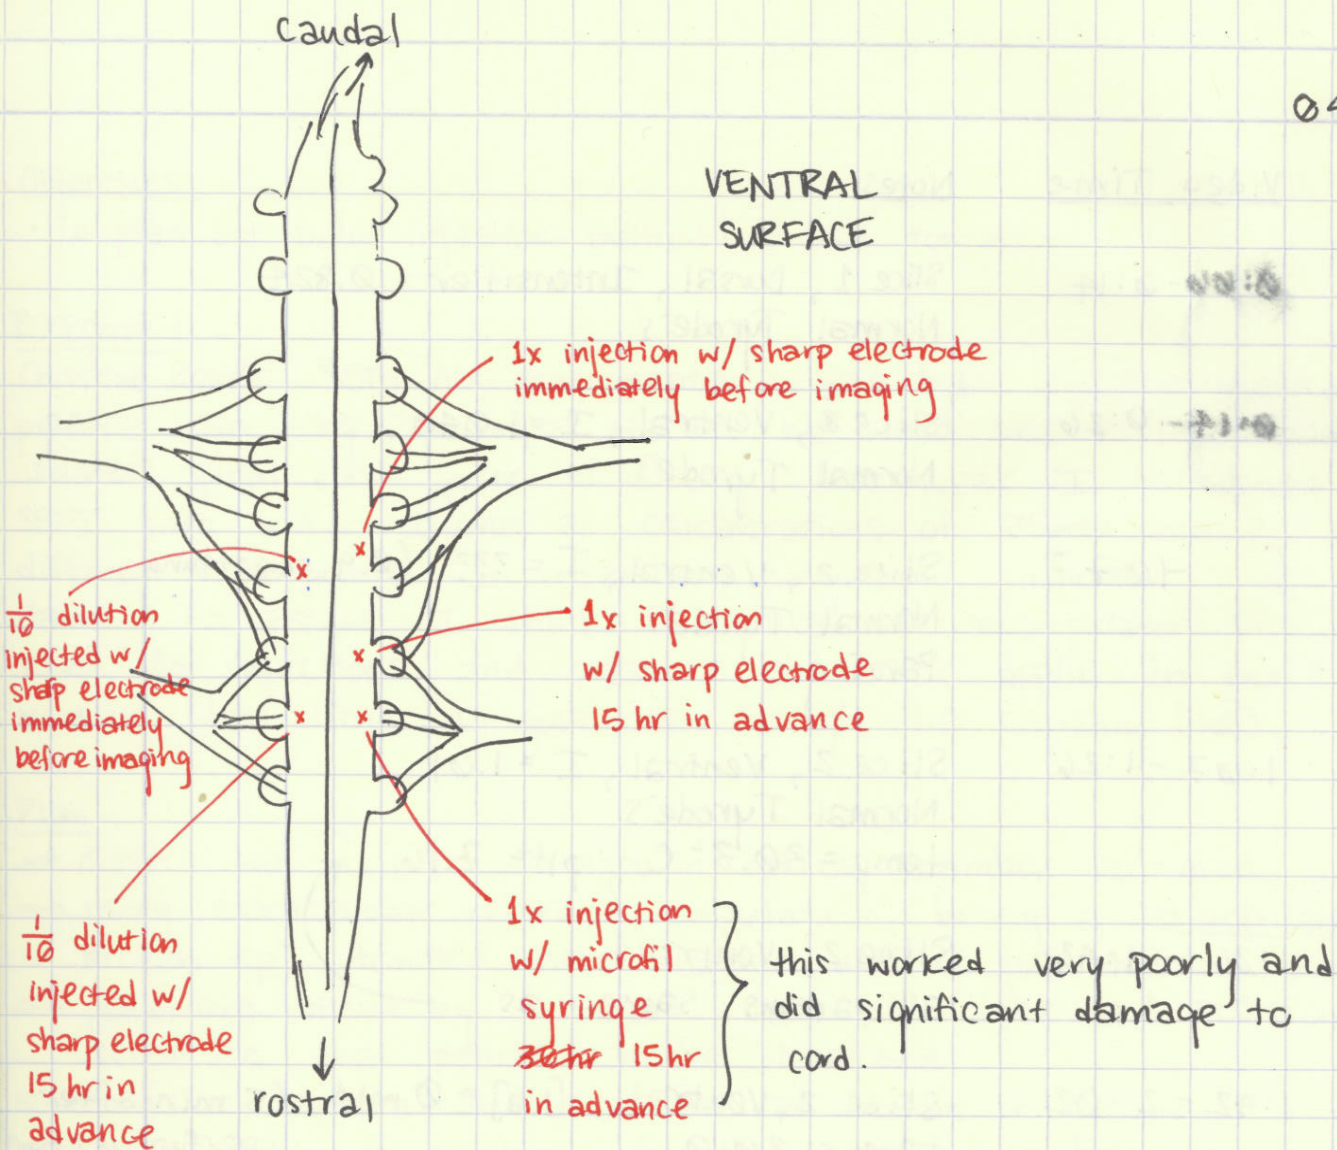 caudal
VENTRAL
SURFACE
1x injection w/ sharp electrode
immediately before imaging
1/10 dilution
injected w/
sharp electrode
immediately
before imaging
1x injection
w/ sharp electrode
15 hr in advance
1/10 dilution
injected w/
sharp electrode
15 hr in
advance
1x injection
w/ microfil
syringe
30hr 15hr
in advance
this worked very poorly and
did significant damage to
cord.
rostral